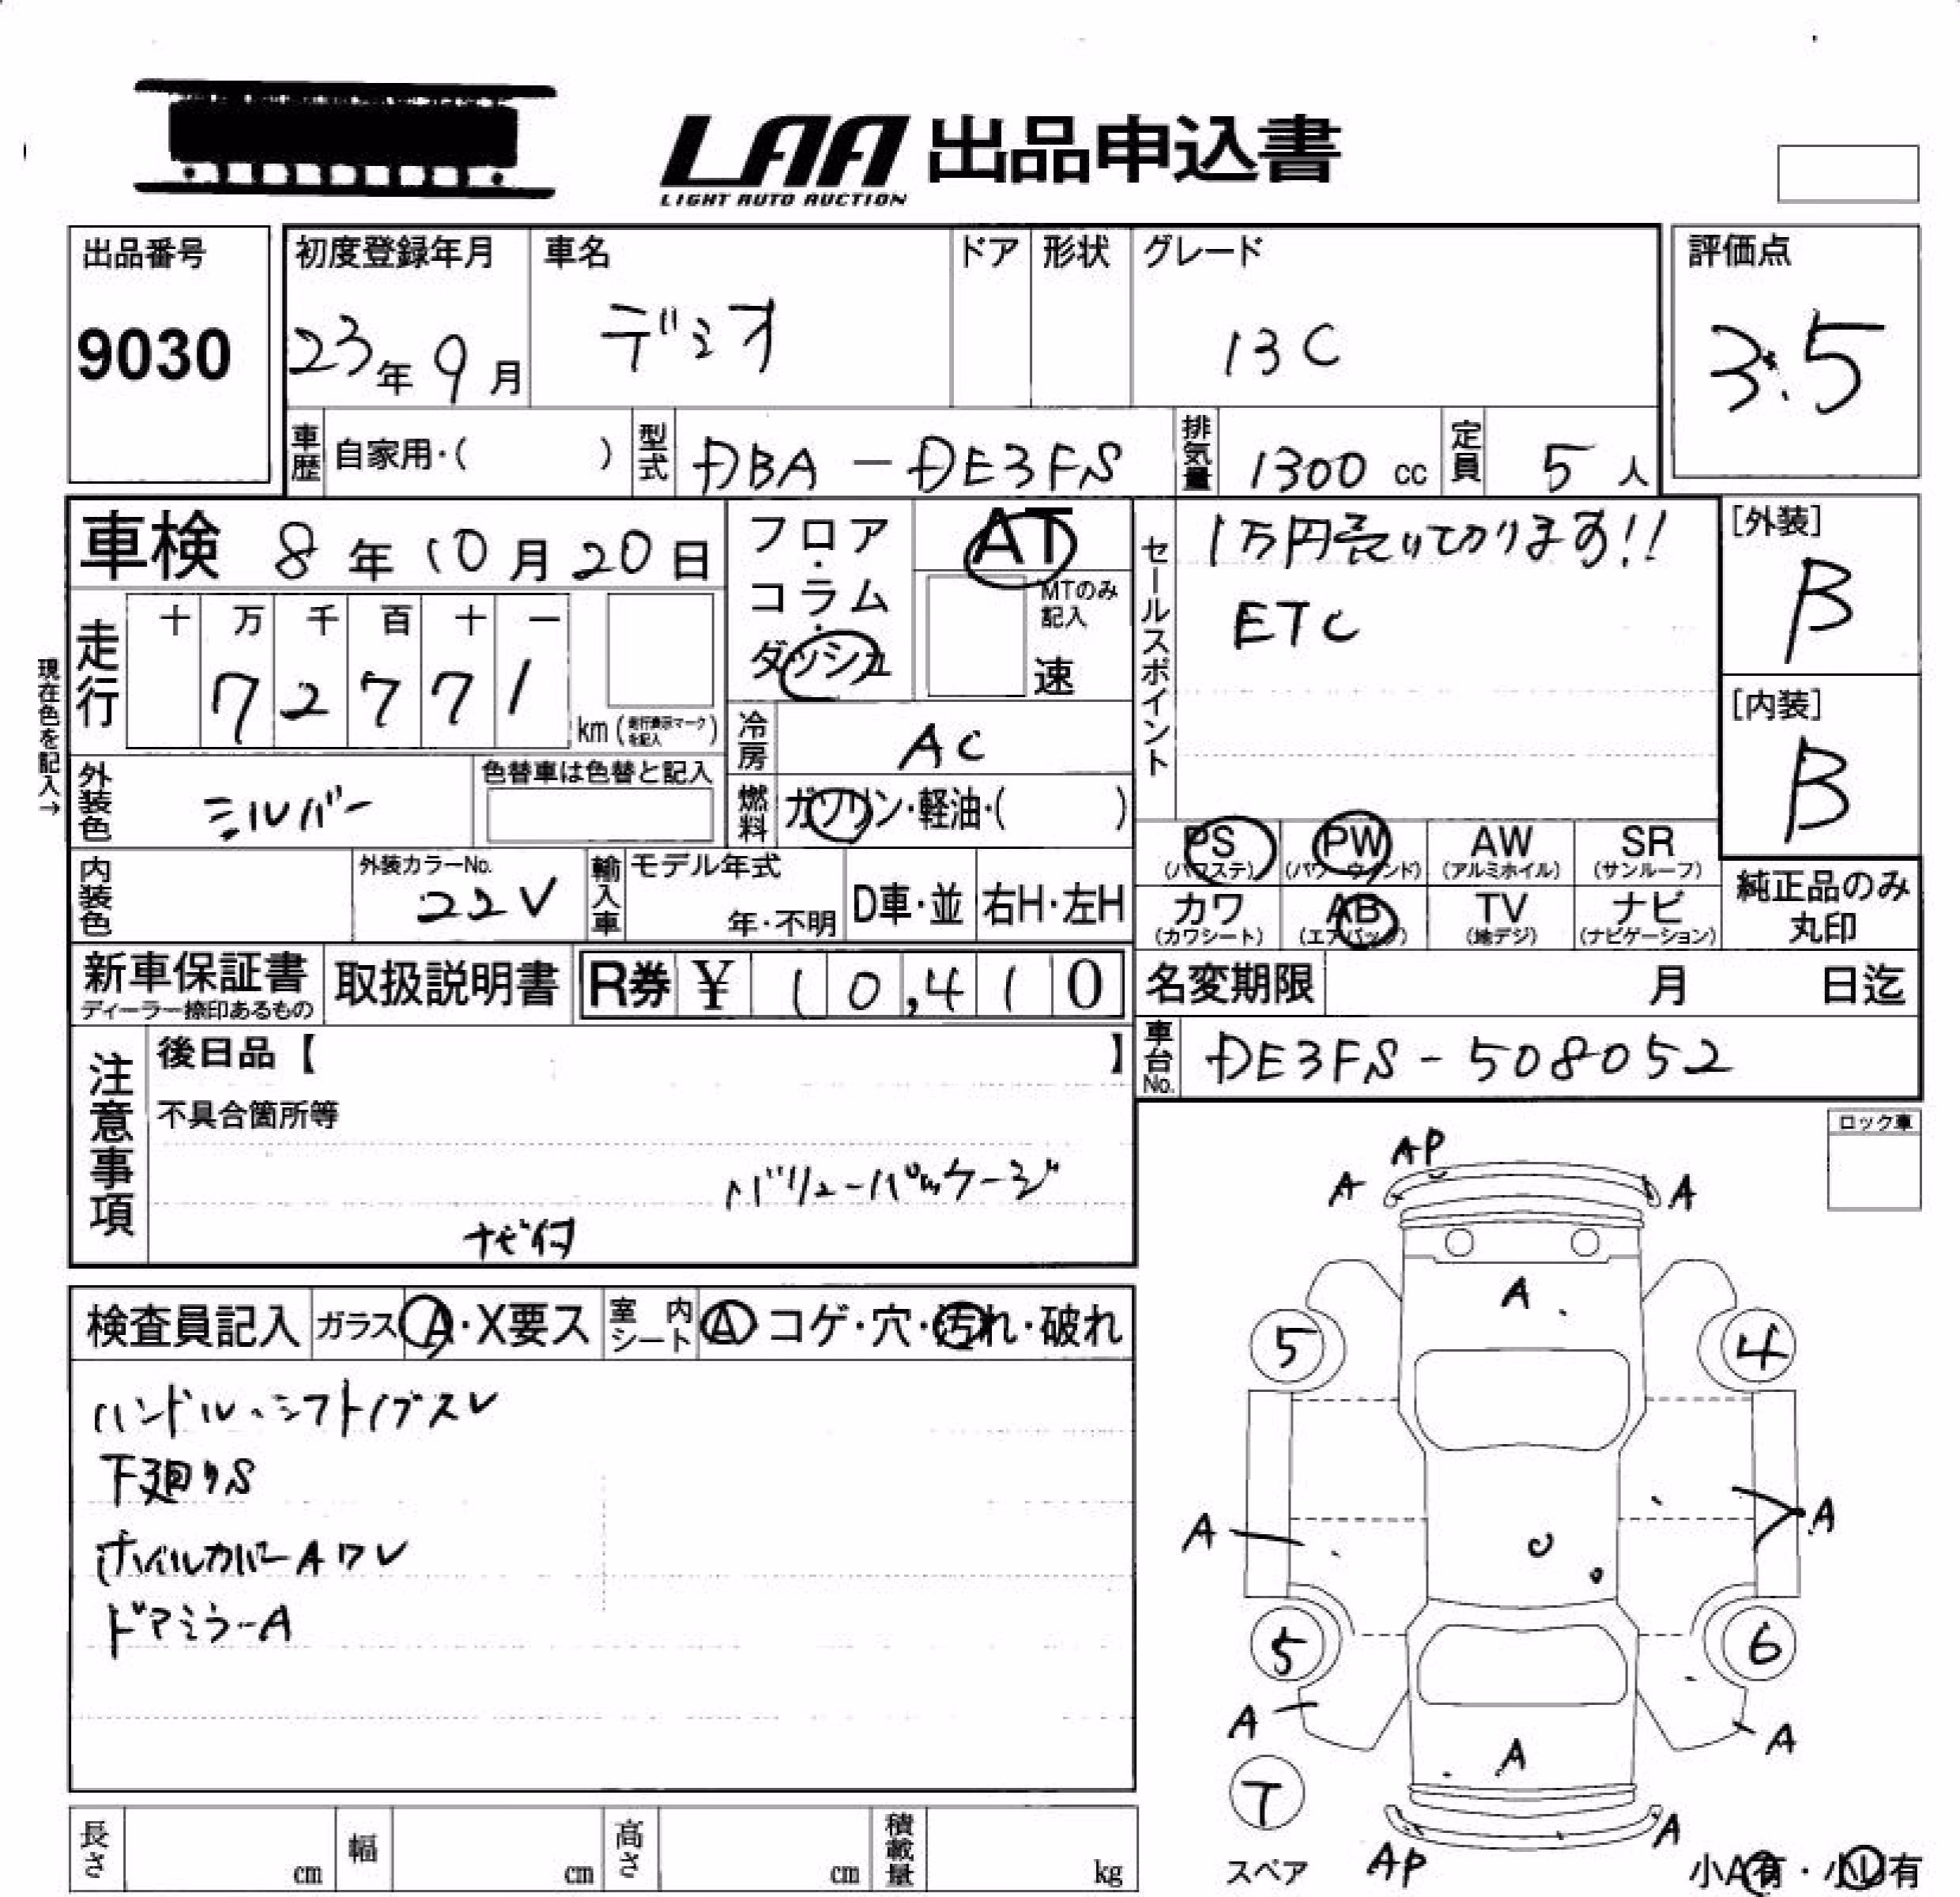 LAA 出品申込書
LIGHT AUTO AUCTION
出品番号
9030
初度登録年月
23年 9月
車名
デミオ
ドア
形状
グレード
13C
評価点
3.5
車歴
自家用・( )
型式
DBA-DE3FS
排気量
1300 cc
定員
5人
車検 8年10月20日
フロア・コラム・ダッシュ
AT
MTのみ記入
速
セールスポイント
1万円売り切ります!!
ETC
[外装]
B
[内装]
B
現在色を記入→
走行
十 万 千 百 十 一
7 2 7 7 1
km(走行表示マークを記入)
冷房
AC
外装色
シルバー
色替車は色替と記入
燃料
ガソリン・軽油・( )
PS (パワステ)
PW (パワーウィンド)
AW (アルミホイル)
SR (サンルーフ)
内装色
外装カラーNo.
22V
輸入車
モデル年式
年・不明
D車・並
右H・左H
カワ (カワシート)
AB (エアバック)
TV (地デジ)
ナビ (ナビゲーション)
純正品のみ
丸印
新車保証書
ディーラー捺印あるもの
取扱説明書
R券 ¥ 10,410
名変期限
月 日迄
車台No.
DE3FS-508052
注意事項
後日品【 】
不具合箇所等
バリューパッケージ
ナビ付
ロック車
検査員記入
ガラス A・X要ス
室内シート A コゲ・穴・汚れ・破れ
ハンドル、シフトノブスレ
下廻りS
ホイルカバーAワレ
ドアミラーA
AP
A
A
A
5
4
A
A
5
6
A
A
A
T
スペア
AP
A
小A有・小U有
長さ
cm
幅
cm
高さ
cm
積載量
kg